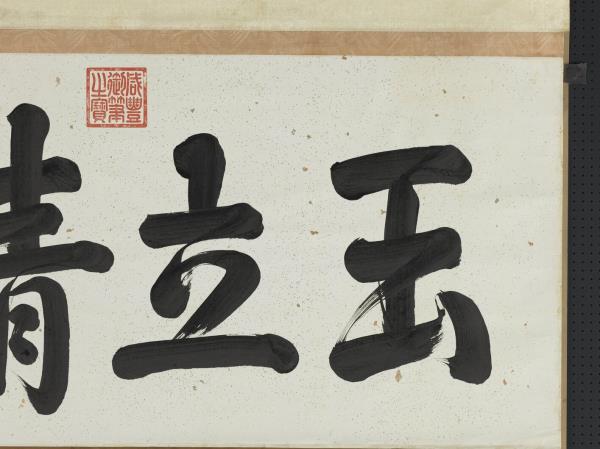 玉立
咸豐
御筆
之寶